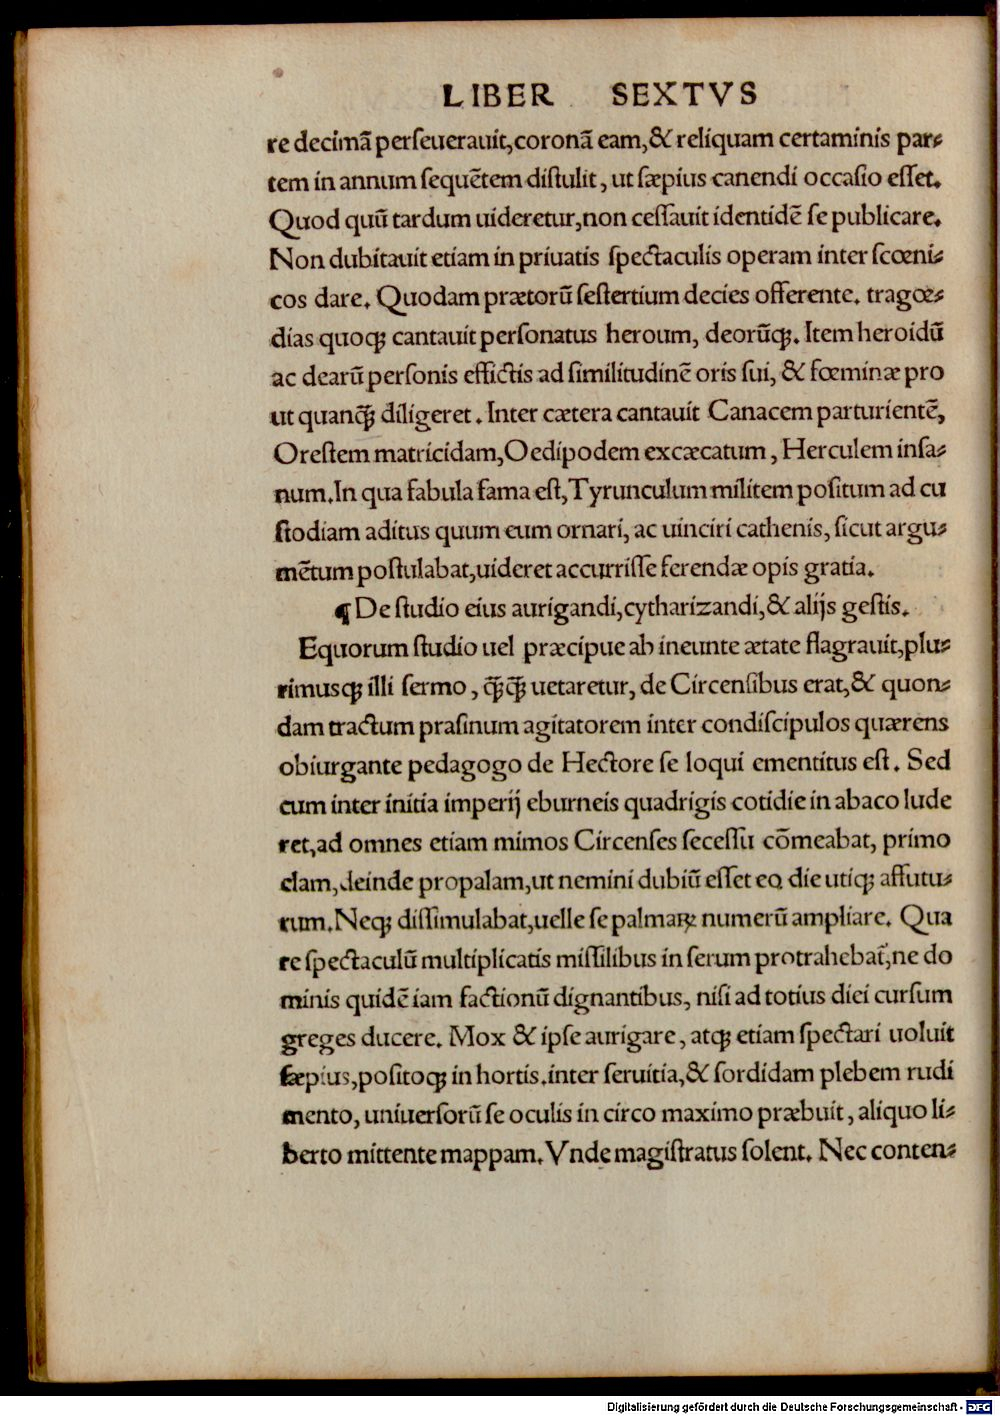 LIBER SEXTVS
re decimā perſeuerauit,coronā eam,& reliquam certaminis par⸗
tem in annum ſequētem diſtulit, ut ſæpius canendi occaſio eſſet.
Quod quū tardum uideretur,non ceſſauit identidē ſe publicare.
Non dubitauit etiam in priuatis ſpectaculis operam inter ſcœni⸗
cos dare. Quodam prætorū ſeſtertium decies offerente. tragœ⸗
dias quoqꝫ cantauit perſonatus heroum, deorūqꝫ. Item heroidū
ac dearū perſonis effictis ad ſimilitudinē oris ſui, & fœminæ pro
ut quanqꝫ̄ diligeret. Inter cætera cantauit Canacem parturientē,
Oreſtem matricidam,Oedipodem excæcatum, Herculem inſa⸗
num.In qua fabula fama eſt,Tyrunculum militem poſitum ad cu
ſtodiam aditus quum eum ornari, ac uinciri cathenis, ſicut argu⸗
mētum poſtulabat,uideret accurriſſe ferendæ opis gratia.
¶ De ſtudio eius aurigandi,cytharizandi,& alijs geſtis.
Equorum ſtudio uel præcipue ab ineunte ætate flagrauit,plu⸗
rimusqꝫ illi ſermo, qꝫ̄qꝫ̄ uetaretur, de Circenſibus erat,& quon⸗
dam tractum praſinum agitatorem inter condiſcipulos quærens
obiurgante pedagogo de Hectore ſe loqui ementitus eſt. Sed
cum inter initia imperij eburneis quadrigis cotidie in abaco lude
ret,ad omnes etiam mimos Circenſes ſeceſſu cōmeabat, primo
clam,deinde propalam,ut nemini dubiū eſſet eo die utiqꝫ affutu⸗
rum.Neqꝫ diſſimulabat,uelle ſe palmaꝝ numerū ampliare. Qua
re ſpectaculū multiplicatis miſſilibus in ſerum protrahebat᷑,ne do
minis quidē iam factionū dignantibus, niſi ad totius diei curſum
greges ducere. Mox & ipſe aurigare, atqꝫ etiam ſpectari uoluit
ſæpius,poſitoqꝫ in hortis.inter ſeruitia,& ſordidam plebem rudi
mento, uniuerſorū ſe oculis in circo maximo præbuit, aliquo li⸗
berto mittente mappam.Vnde magiſtratus ſolent. Nec conten⸗
Digitalisierung gefördert durch die Deutsche Forschungsgemeinschaft - DFG